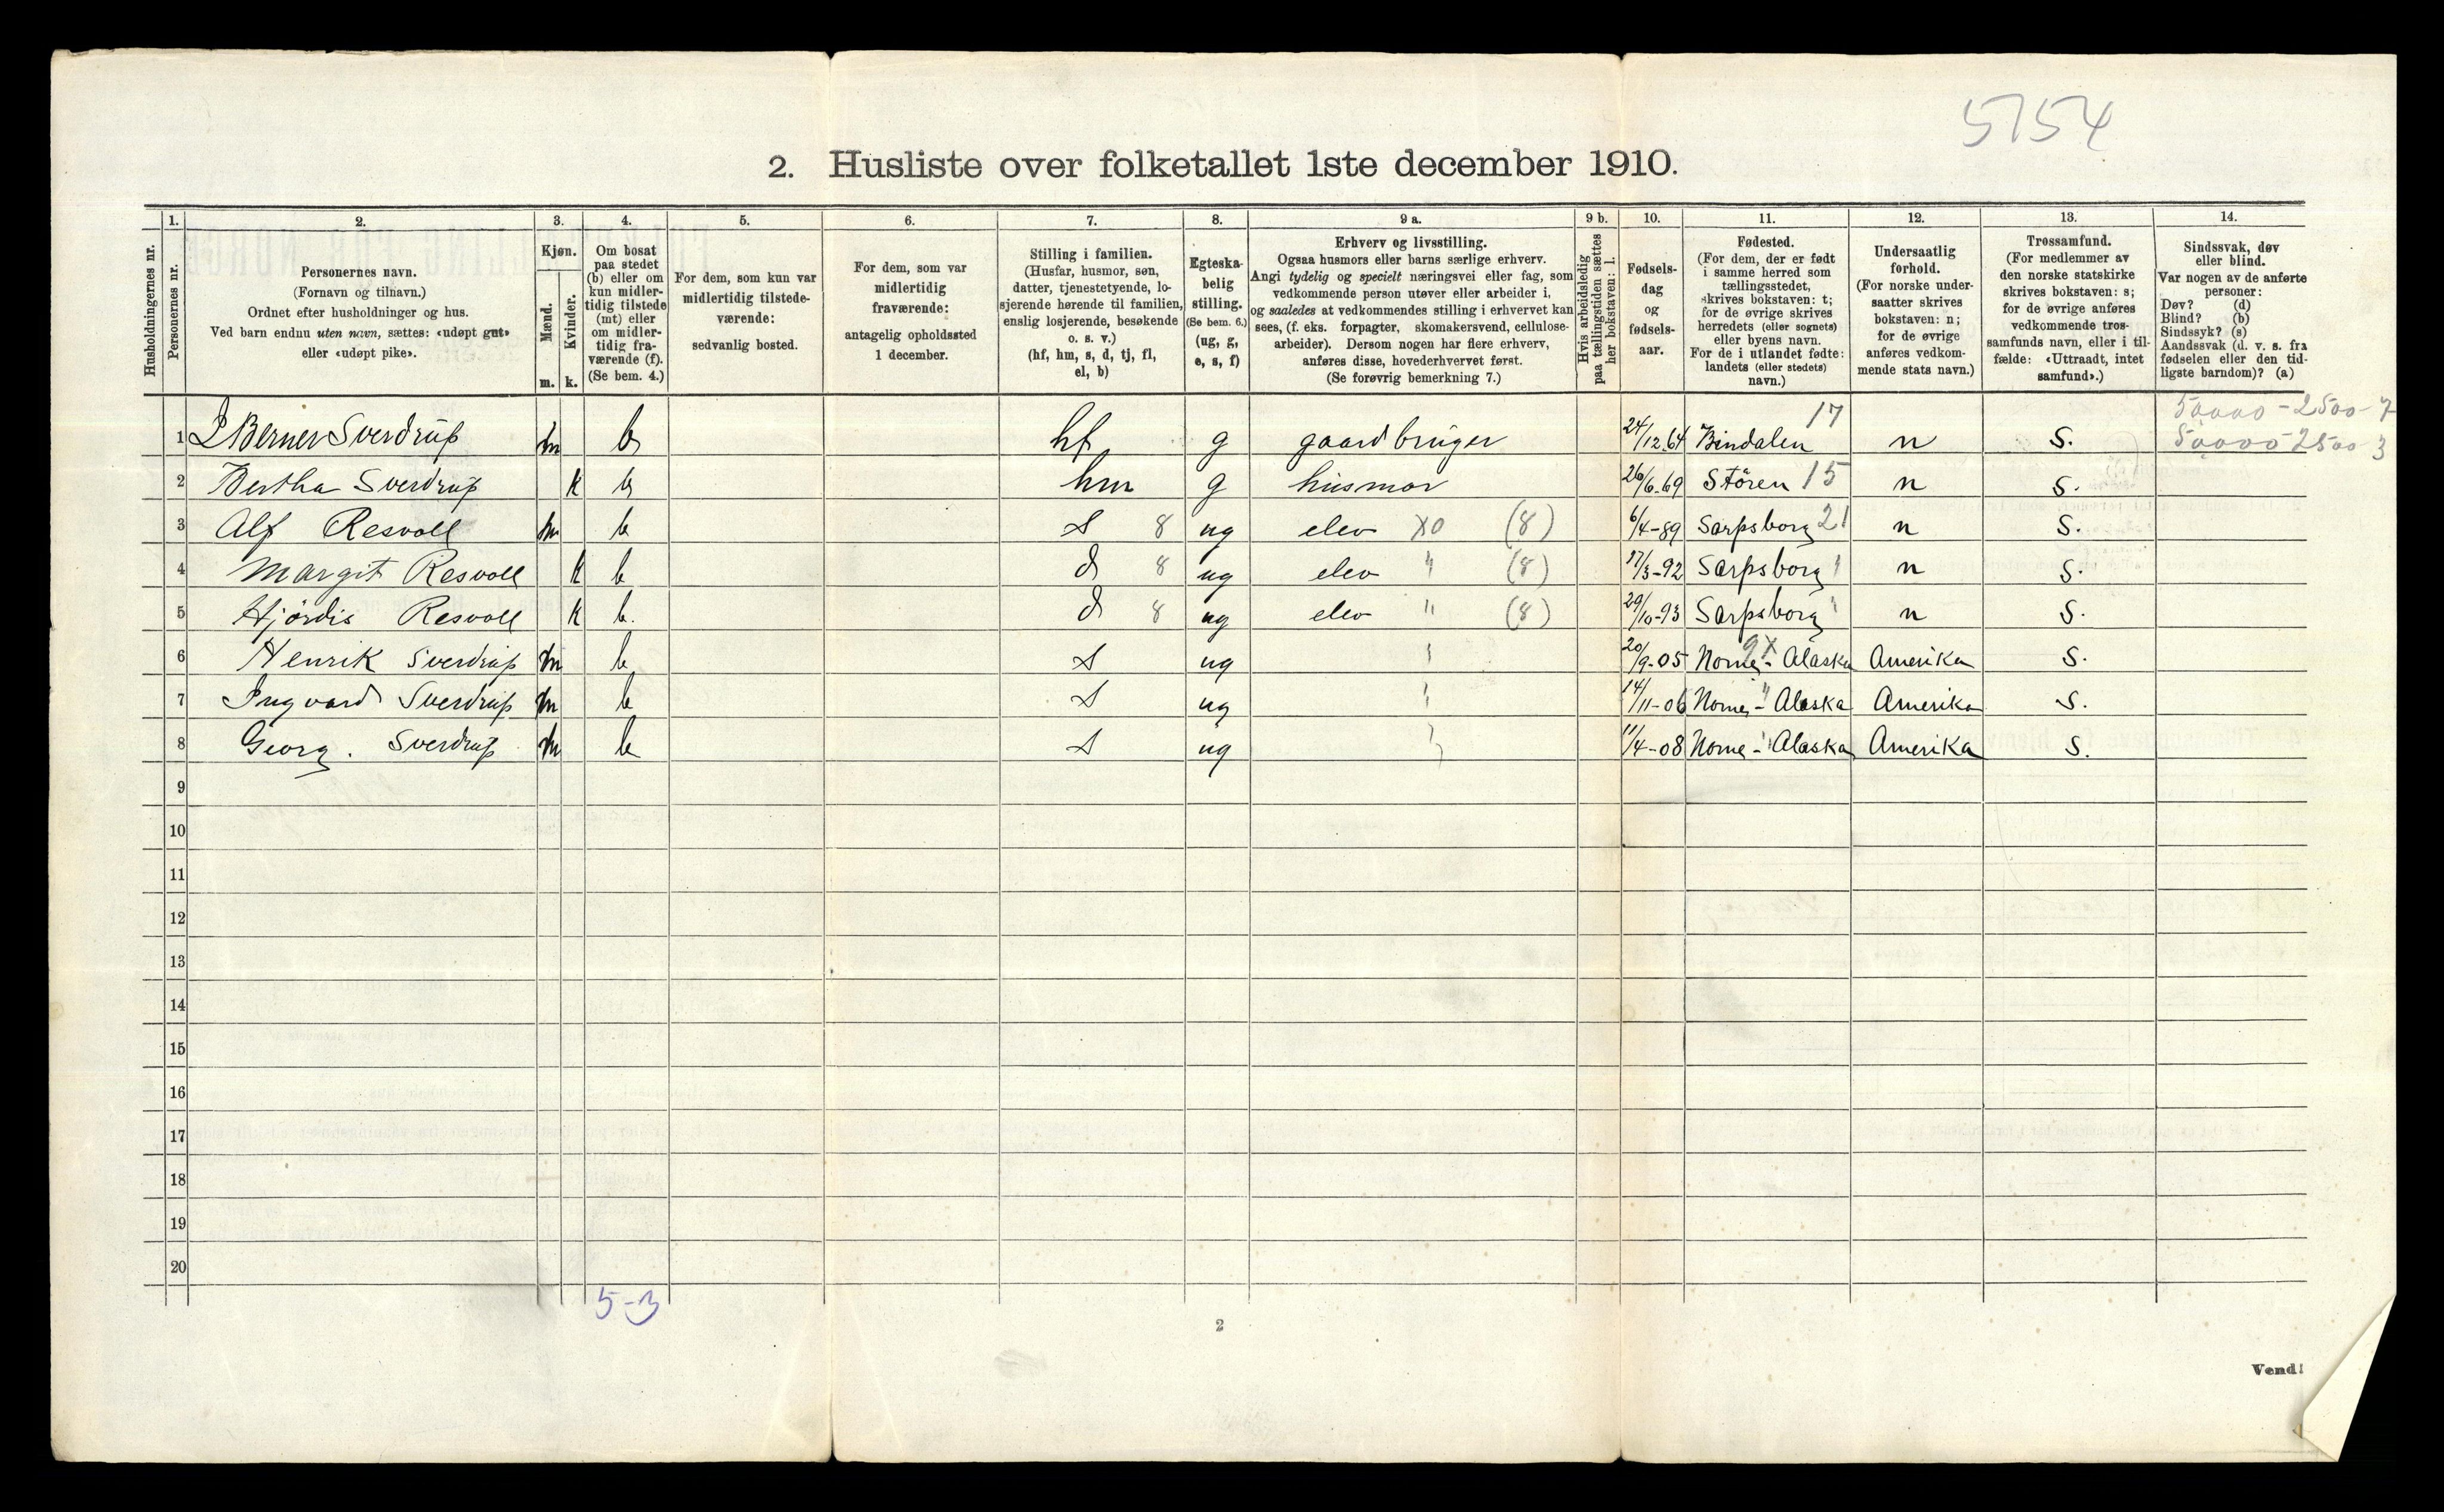 5754
2. Husliste over folketallet 1ste december 1910.
Husholdningernes nr.
1. Personernes nr.
2. Personernes navn.
(Fornavn og tilnavn.)
Ordnet efter husholdninger og hus.
Ved barn endnu uten navn, sættes: «udøpt gut»
eller «udøpt pike».
3. Kjøn.
Mænd. m.
Kvinder. k.
4. Om bosat
paa stedet
(b) eller om
kun midler-
tidig tilstede
(mt) eller
om midler-
tidig fra-
værende (f).
(Se bem. 4.)
5. For dem, som kun var
midlertidig tilstede-
værende:
sedvanlig bosted.
6. For dem, som var
midlertidig
fraværende:
antagelig opholdssted
1 december.
7. Stilling i familien.
(Husfar, husmor, søn,
datter, tjenestetyende, lo-
sjerende hørende til familien,
enslig losjerende, besøkende
o. s. v.)
(hf, hm, s, d, tj, fl,
el, b)
8. Egteska-
belig
stilling.
(Se bem. 6.)
(ug, g,
e, s, f)
9 a. Erhverv og livsstilling.
Ogsaa husmors eller barns særlige erhverv.
Angi tydelig og specielt næringsvei eller fag, som
vedkommende person utøver eller arbeider i,
og saaledes at vedkommendes stilling i erhvervet kan
sees, (f. eks. forpagter, skomakersvend, cellulose-
arbeider). Dersom nogen har flere erhverv,
anføres disse, hovederhvervet først.
(Se forøvrig bemerkning 7.)
9 b. Hvis arbeidsledig
paa tællingstiden sættes
her bokstaven: l.
10. Fødsels-
dag
og
fødsels-
aar.
11. Fødested.
(For dem, der er født
i samme herred som
tællingsstedet,
skrives bokstaven: t;
for de øvrige skrives
herredets (eller sognets)
eller byens navn.
For de i utlandet fødte:
landets (eller stedets)
navn.)
12. Undersaatlig
forhold.
(For norske under-
saatter skrives
bokstaven: n;
for de øvrige
anføres vedkom-
mende stats navn.)
13. Trossamfund.
(For medlemmer av
den norske statskirke
skrives bokstaven: s;
for de øvrige anføres
vedkommende tros-
samfunds navn, eller i til-
fælde: «Uttraadt, intet
samfund».)
14. Sindssvak, døv
eller blind.
Var nogen av de anførte
personer:
Døv? (d)
Blind? (b)
Sindssyk? (s)
Aandssvak (d. v. s. fra
fødselen eller den tid-
ligste barndom)? (a)
50000-2500-7
1 Berner Sverdrup m b hf g gaardbruger 24/12.64 Bindalen 17 n S. 50000-2500 3
2 Bertha Sverdrup k b hm g husmor 26/6-69 Stören 15 n S.
3 Alf Resvoll m b s 8 ug elev X0 (8) 6/4-89 Sarpsborg 21 n S.
4 Margit Resvoll k b d 8 ug elev " (8) 17/3-92 Sarpsborg " n S.
5 Hjördis Resvoll k b. d 8 ug elev " (8) 29/10-93 Sarpsborg " n S.
6 Henrik Sverdrup m b s ug " 20/9-05 Nome - Alaska 9X Amerika S.
7 Ingvard Sverdrup m b s ug " 14/11-06 Nome - " Alaska Amerika S.
8 Georg. Sverdrup m b s ug " 11/4-08 Nome - " Alaska Amerika S.
9
10
11
12
13
14
15
16
17
18
19
20
5-3
2
Vend!